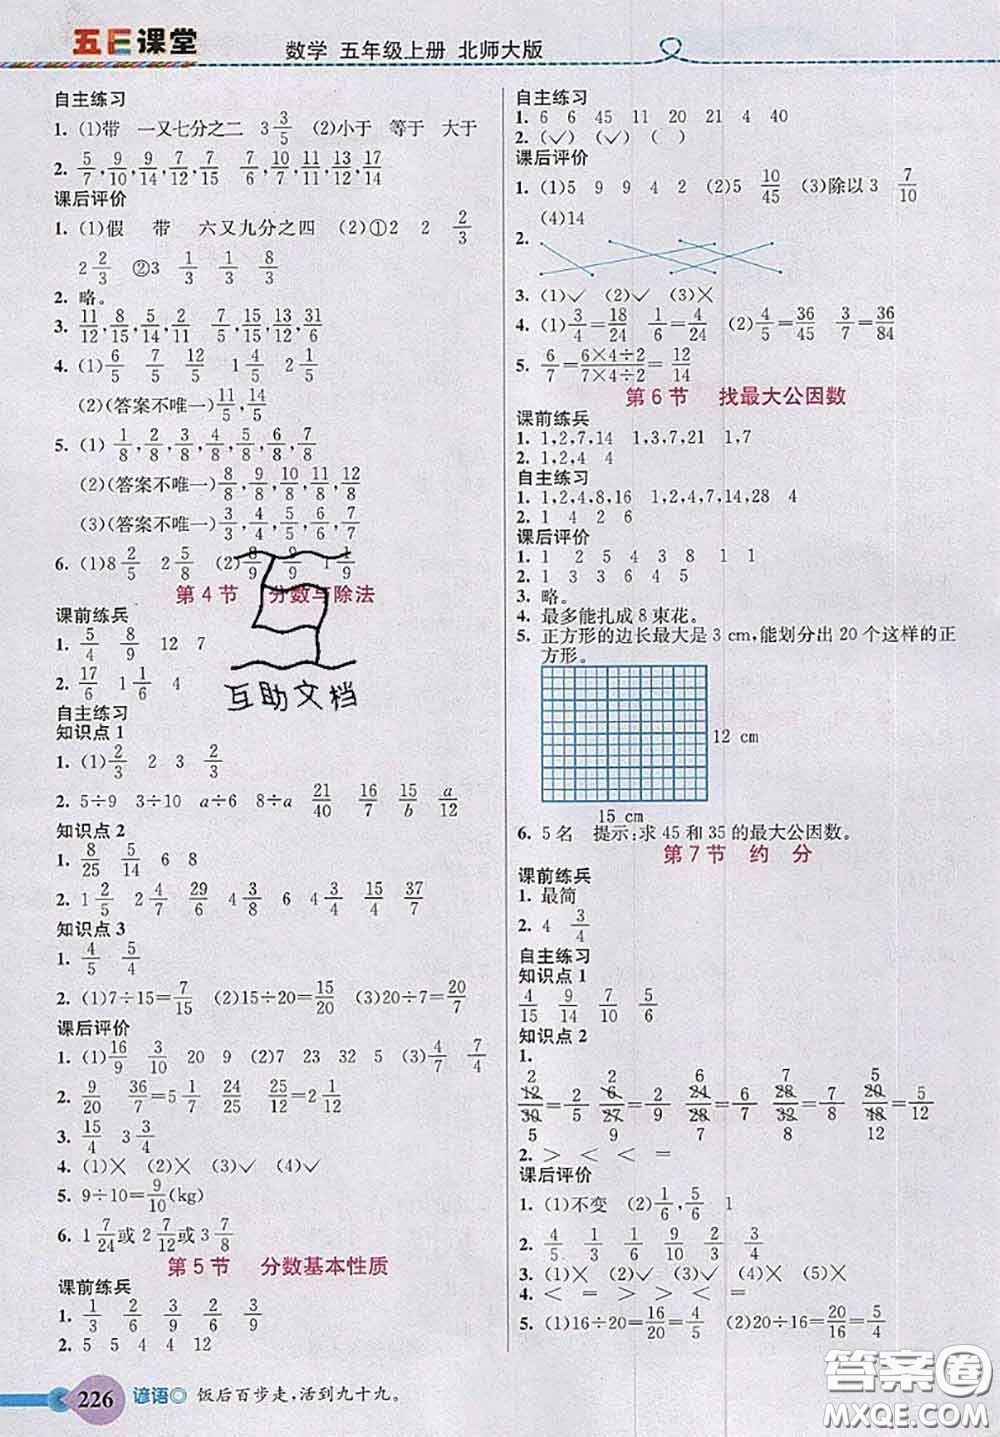 五E课堂
数学 五年级上册 北师大版
自主练习
1. (1)带 一又七分之二 3 3/5 (2)小于 等于 大于
2. 5/7, 9/10, 9/14, 7/12, 7/15 6/7, 7/10, 11/14, 11/12, 17/14
课后评价
1. (1)假 带 六又九分之四 (2)①2 2 2/3
2 2/3 ②3 1/3 1/3 8/3
2. 略。
3. 11/12, 8/15, 5/14, 2/11 7/5, 15/12, 13/12, 31/6
4. (1)6/5 7/5 12/5 1 1/5 2 2/5
(2)(答案不唯一)11/5, 14/5
5. (1) 1/8, 2/8, 3/8, 4/8, 5/8, 6/8, 7/8
(2)(答案不唯一)8/8, 9/8, 10/8, 11/8, 12/8
(3)(答案不唯一)3/3, 4/4, 5/5, 6/6, 7/7
6. (1)8 2/5 2 5/8 (2)8/9 9/9 1 1/9
第4节 分数与除法
课前练兵
1. 5/4 8/9 12 7
2. 17/6 1 1/6 4
互助文档
自主练习
知识点1
1. (1)2/3 2 3 2/3
2. 5÷9 3÷10 a÷6 8÷a 21/40 16/7 15/b a/12
知识点2
1. 8/25 5/14 6 8
2. 1 2/5 2 4/7 29/6 4 3/8 6 1/4 33/8
知识点3
1. 4/5 5/4
2. (1)7÷15=7/15 (2)15÷20=15/20 (3)20÷7=20/7
课后评价
1. (1)16/9 3/10 20 9 (2)7 23 32 5 (3)4/7 7/4
2. 9/20 36/7=5 1/7 24/25 25/12=2 1/12
3. 15/4 3 3/4
4. (1)╳ (2)╳ (3)✓ (4)✓
5. 9÷10=9/10(kg)
6. 1 7/24或2 7/12或3 7/8
第5节 分数基本性质
课前练兵
1. 1/3 2/6 3/9 4/12
2. 5 5 4 4 12
226 谚语 饭后百步走,活到九十九。
自主练习
1. 6 6 45 11 20 21 4 40
2. (✓) (✓) ( )
课后评价
1. (1)5 9 9 4 2 (2)5 10/45 (3)除以3 7/10
(4)14
2.
3. (1)✓ (2)✓ (3)╳
4. (1)3/4=18/24 1/6=4/24 (2)4/5=36/45 3/7=36/84
5. 6/7=6×4÷2/7×4÷2=12/14
第6节 找最大公因数
课前练兵
1. 1,2,7,14 1,3,7,21 1,7
2. 1,2,4 4
自主练习
1. 1,2,4,8,16 1,2,4,7,14,28 4
2. 1 4 2 6
课后评价
1. 1 2 5 4 3 8 1 1
2. ✓ ✓ ╳ ╳
3. 略。
4. 最多能扎成8束花。
5. 正方形的边长最大是3 cm,能划分出20个这样的正
方形。
12 cm
15 cm
6. 5名 提示:求45和35的最大公因数。
第7节 约 分
课前练兵
1. 最简
2. 4 3/4
自主练习
知识点1
4/15 9/14 7/10 5/6
知识点2
1.
2 2 6 7 5
12/30=2/5 6/27=2/9 24/28=6/7 28/32=7/8 20/48=5/12
5 9 7 8 12
2. > < < =
课后评价
1. (1)不变 (2)1/6, 5/6 1
2. 4/5 1/3 1/3 2/5 1/2 2/5
3. (1)╳ (2)✓ (3)✓ (4)╳
4. < = > > < =
5. (1)16÷20=16/20=4/5 (2)20÷16=20/16=5/4
答案圈
MXQE.COM